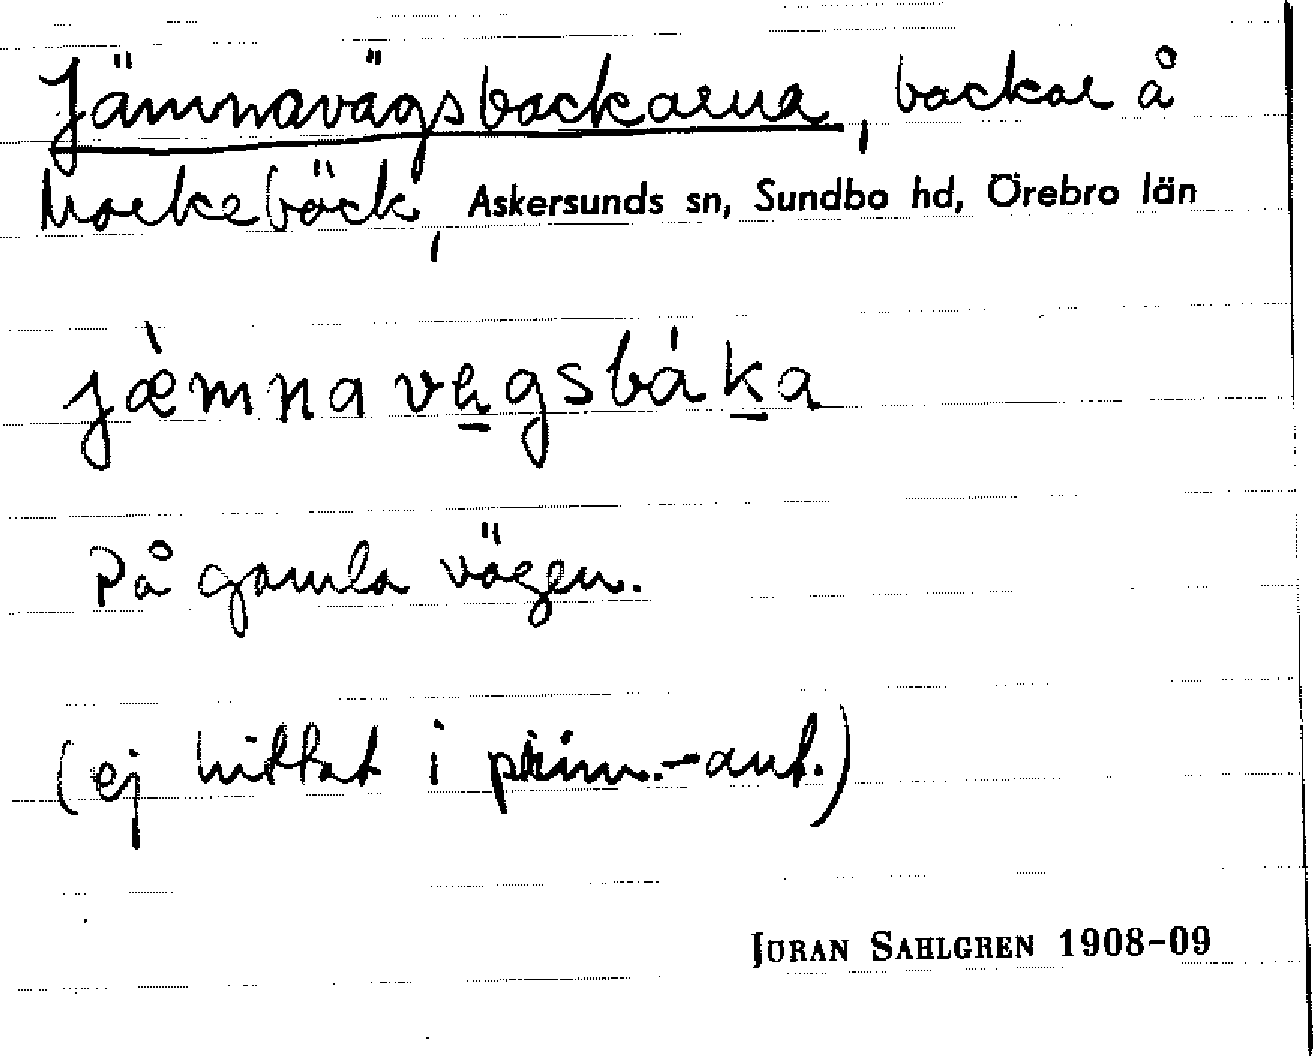 Jämnavägsbackarna, backar å
Markebäck, Askersunds sn, Sundbo hd, Örebro län
jæ̀mnavegsbáka
På gamla vägen.
(ej hittat i prim.-ant.)
JÖRAN SAHLGREN 1908-09